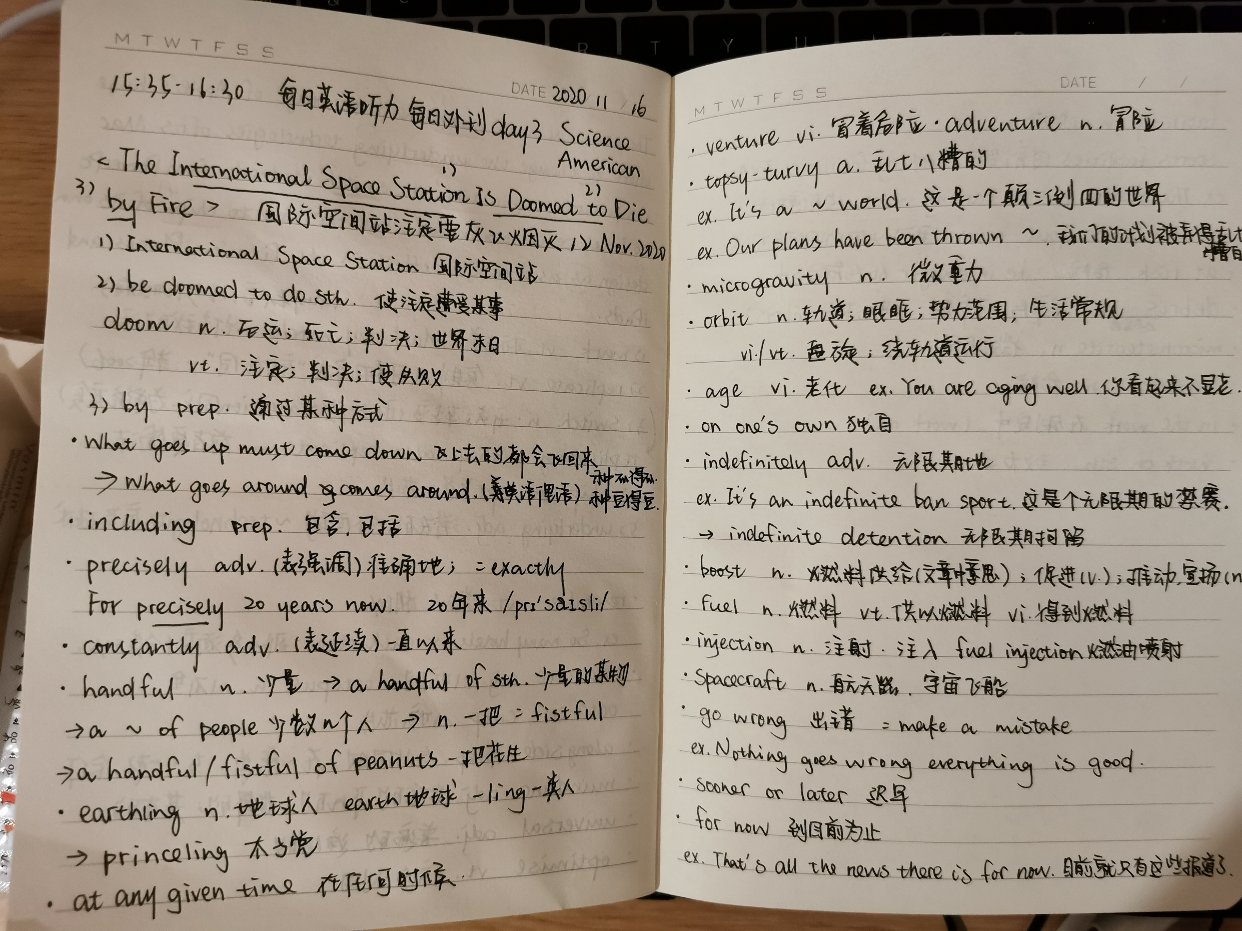 M T W T F S S
DATE 2020 11 16
15:35-16:30 每日英语听力 每日外刊 day3 Science
American
1) 2)
< The International Space Station Is Doomed to Die
3) by Fire > 国际空间站注定要灰飞烟灭 12 Nov. 2020
1) International Space Station 国际空间站
2) be doomed to do sth. 使注定遭受某事
doom n. 厄运；死亡；判决；世界末日
vt. 注定；判决；使失败
3) by prep. 通过某种方式
· What goes up must come down 飞上去的都会飞回来
→ What goes around comes around. (英语谚语) 种瓜得瓜. 种豆得豆.
· including prep. 包含、包括
· precisely adv. (表强调) 准确地； = exactly
For precisely 20 years now. 20年来 /prɪ'saɪsli/
· constantly adv. (表延续) 一直以来
· handful n. 少量 → a handful of sth. 少量的某物
→ a ~ of people 少数几个人 → n. 一把 = fistful
→ a handful/fistful of peanuts 一把花生
· earthling n. 地球人 earth 地球 -ling 一类人
→ princeling 太子党
· at any given time 在任何时候.
M T W T F S S
DATE / /
· venture vi. 冒着危险 · adventure n. 冒险
· topsy-turvy a. 乱七八糟的
ex. It's a ~ world. 这是一个颠三倒四的世界
ex. Our plans have been thrown ~. 我们的计划被弄得乱七八糟
· microgravity n. 微重力
· orbit n. 轨道；眼眶；势力范围；生活常规
vi/vt. 盘旋；绕轨道运行
· age vi. 老化 ex. You are aging well. 你看起来不显老.
· on one's own 独自
· indefinitely adv. 无限期地
ex. It's an indefinite ban sport. 这是个无限期的禁赛.
→ indefinite detention 无限期拘留
· boost n. 燃料供给(文章中意思)；促进(v.)；推动,宣扬(n
· fuel n. 燃料 vt. 供以燃料 vi. 得到燃料
· injection n. 注射. 注入 fuel injection 燃油喷射
· Spacecraft n. 航天器、宇宙飞船
· go wrong 出错 = make a mistake
ex. Nothing goes wrong everything is good.
· sooner or later 迟早
· for now 到目前为止
ex. That's all the news there is for now. 目前就只有这些报道了.